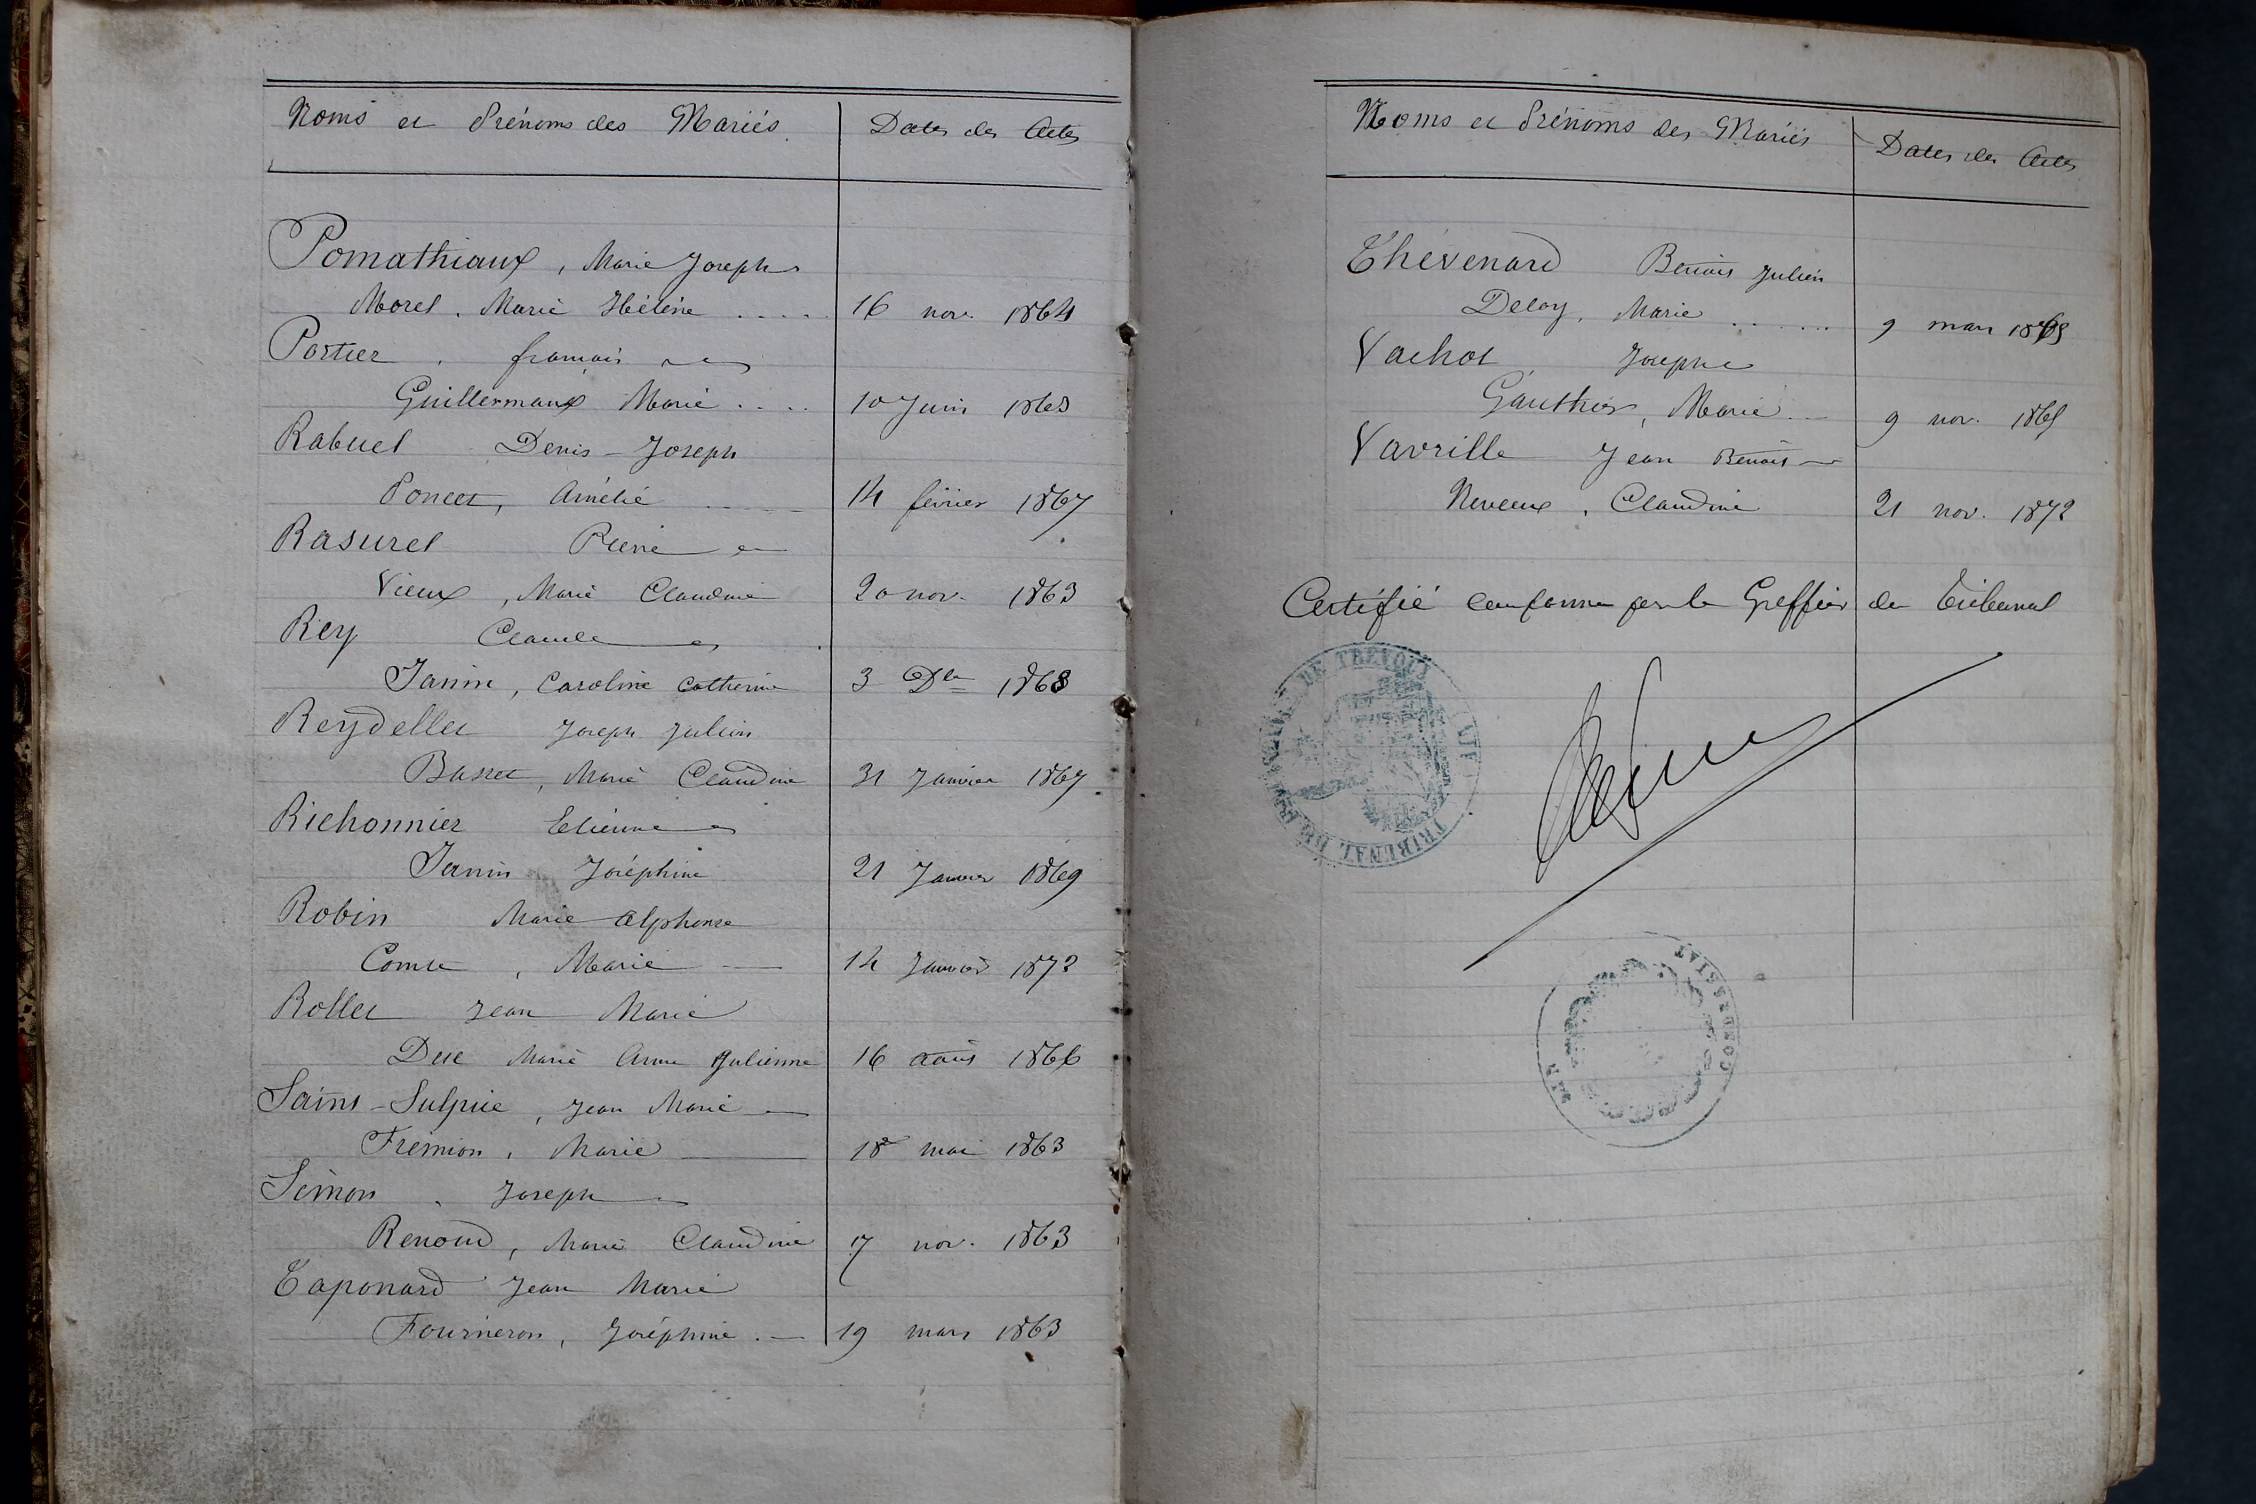 Noms et Prénoms des Mariés. Dates des Actes
Pomathiaux, Marie Joseph
Morel, Marie Hélène ..... 16 nov. 1864
Portier, françois et
Guillermaux Marie .... 10 Juin 1863
Rabuel Denis-Joseph
Poncet, Amélie 14 février 1867
Rasurel Pierre et
Vieux, Marie Claudine 20 nov. 1863
Rey Claude et
Janin, Caroline Catherine 3 Xbre 1868
Reydellet Joseph Julien
Basset, Marie Claudine 31 Janvier 1867
Richonnier Etienne et
Janin Joséphine 21 Janvier 1869
Robin Marie Alphonse
Comte, Marie 14 Janvier 1872
Rollet Jean Marie
Duc Marie Anne Julienne 16 août 1866
Saint-Sulpice, Jean Marie
Frémion, Marie 18 mai 1863
Simon, Joseph et
Renoud, Marie Claudine 17 nov. 1863
Taponard Jean Marie
Fourneron, Joséphine. 19 mars 1863
Noms et Prénoms des Mariés Dates des Actes
Thévenard Benoit Julien
Deloy, Marie ...... 9 mars
Vachot Joseph et
Gauthier, Marie 9 nov. 1865
Vavrille Jean Benoit
Neveux, Claudine 21 nov. 1872
Certifié conforme par le Greffier du Tribunal
TRIBUNAL DE TRÉVOUX AIN
CONDEISSIAT AIN